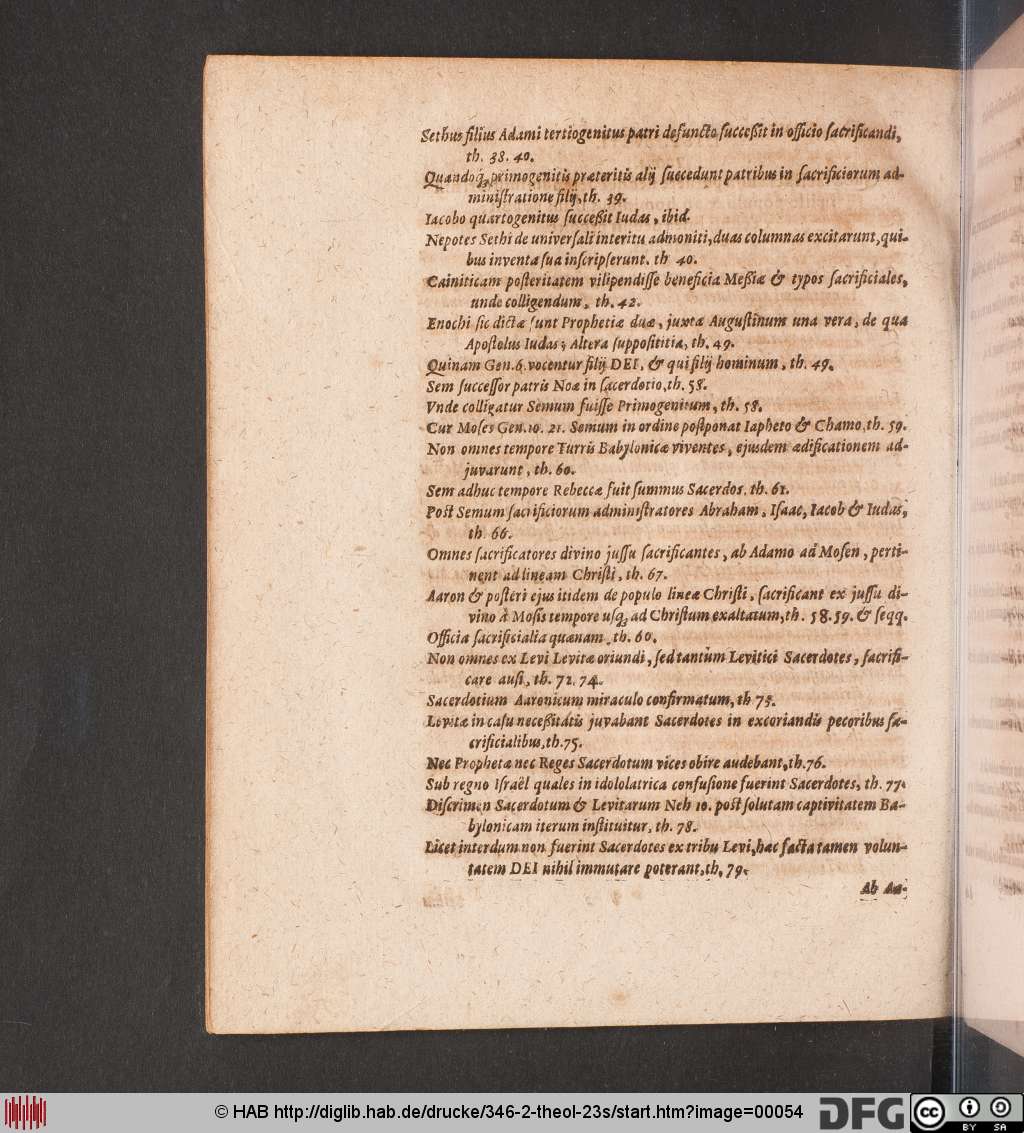 Sethus filius Adami tertiogenitus patri defuncto succeßit in officio sacrificandi,
th. 38. 40.
Quandoq́; primogenitis præteritis alij succedunt patribus in sacrificiorum ad-
ministratione filij, th. 39.
Iacobo quartogenitus succeßit Iudas, ibid.
Nepotes Sethi de universali interitu admoniti, duas columnas excitarunt, qui-
bus inventa sua inscripserunt. th 40.
Cainiticam posteritatem vilipendisse beneficia Meßiæ & typos sacrificiales,
unde colligendum, th. 42.
Enochi sic dictæ sunt Prophetiæ duæ, juxta Augustinum una vera, de qua
Apostolus Iudas; Altera supposititia, th. 49.
Quinam Gen. 6. vocentur filij DEI, & qui filij hominum, th. 49.
Sem successor patris Noæ in sacerdotio, th. 58.
Vnde colligatur Semum fuisse Primogenitum, th. 58.
Cur Moses Gen. 10. 21. Semum in ordine postponat Iapheto & Chamo, th. 59.
Non omnes tempore Turris Babylonicæ viventes, ejusdem ædificationem ad-
juvarunt, th. 60.
Sem adhuc tempore Rebeccæ fuit summus Sacerdos, th. 61.
Post Semum sacrificiorum administratores Abraham, Isaac, Iacob & Iudas,
th. 66.
Omnes sacrificatores divino jussu sacrificantes, ab Adamo ad Mosen, perti-
nent ad lineam Christi, th. 67.
Aaron & posteri ejus itidem de populo lineæ Christi, sacrificant ex jussu di-
vino à Mosis tempore usq́; ad Christum exaltatum, th. 58. 59. & seqq.
Officia sacrificialia quænam, th. 60.
Non omnes ex Levi Levitæ oriundi, sed tantùm Levitici Sacerdotes, sacrifi-
care ausi, th. 72. 74.
Sacerdotium Aaronicum miraculo confirmatum, th 73.
Levitæ in casu neceßitatis juvabant Sacerdotes in excoriandis pecoribus sa-
crificialibus, th. 75.
Nec Prophetæ nec Reges Sacerdotum vices obire audebant, th. 76.
Sub regno Israël quales in idololatrica confusione fuerint Sacerdotes, th. 77.
Discrimen Sacerdotum & Levitarum Neh 10. post solutam captivitatem Ba-
bylonicam iterum instituitur, th. 78.
Licet interdum non fuerint Sacerdotes ex tribu Levi, hac facta tamen volun-
tatem DEI nihil immutare poterant, th. 79.
Ab Aa-
© HAB http://diglib.hab.de/drucke/346-2-theol-23s/start.htm?image=00054
DFG
cc
BY SA